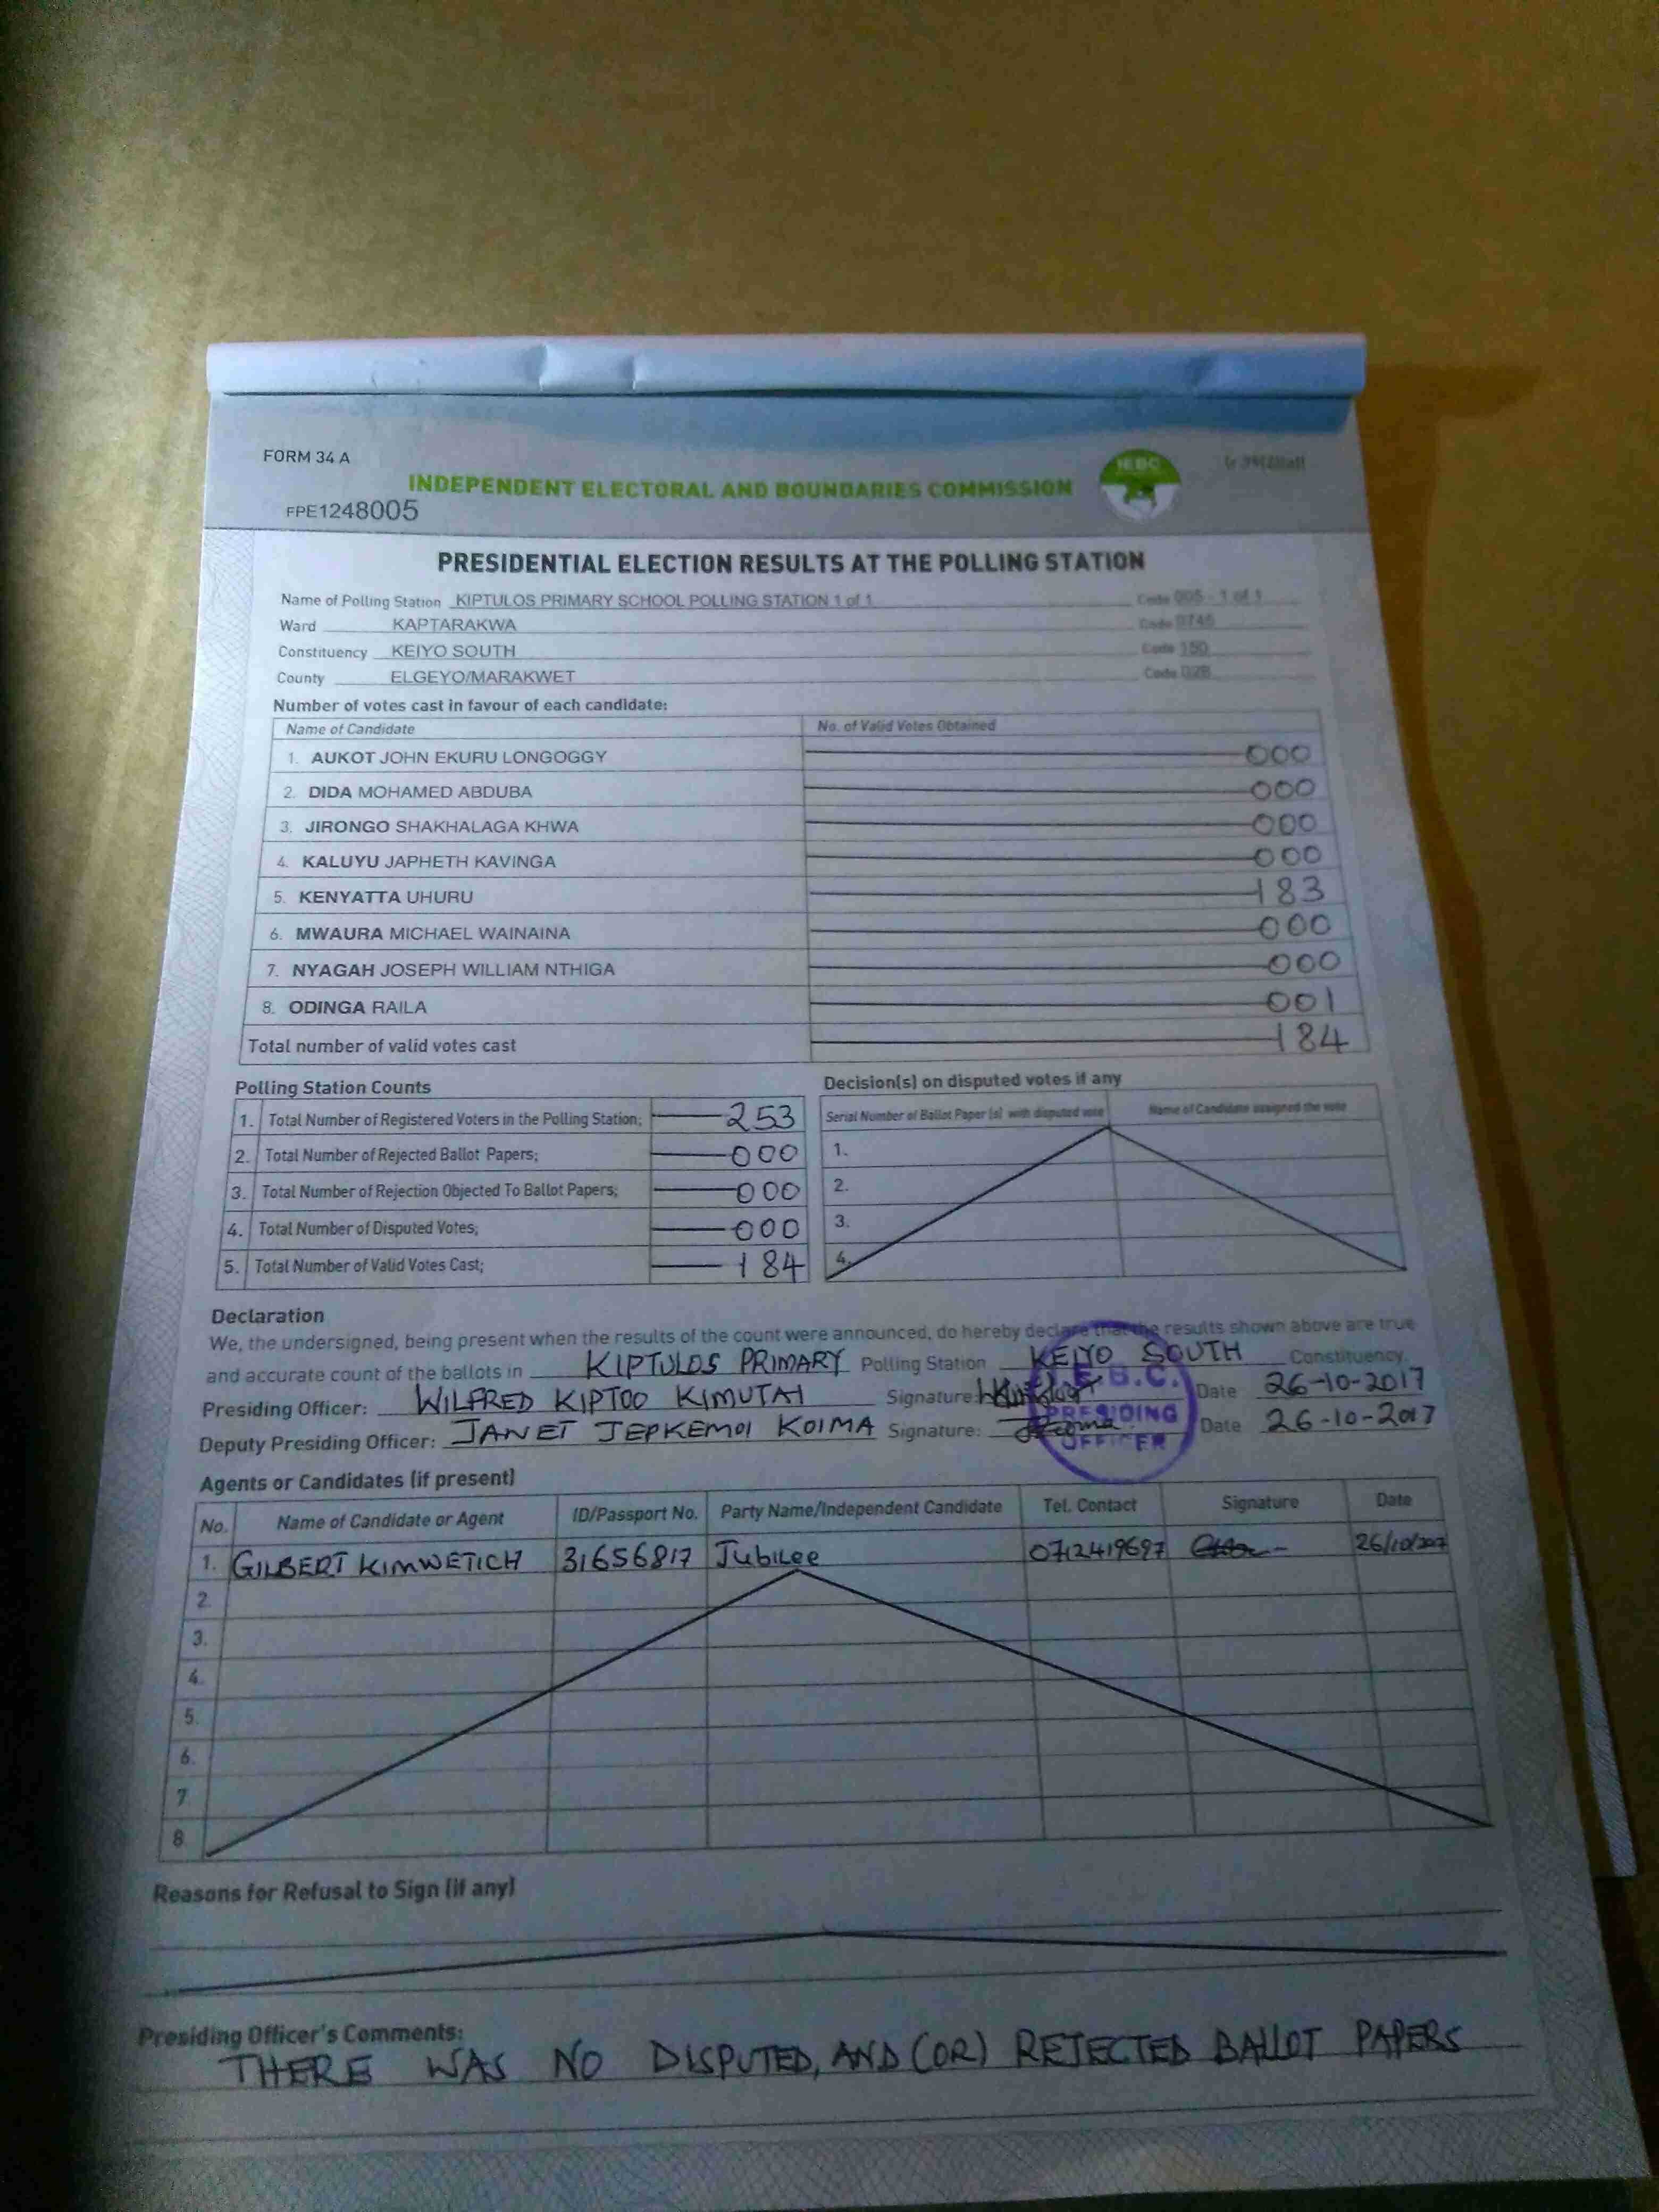 FORM 34 A
INDEPENDENT ELECTORAL AND BOUNDARIES COMMISSION
IEBC
FPE1248005
PRESIDENTIAL ELECTION RESULTS AT THE POLLING STATION
Name of Polling Station KIPTULOS PRIMARY SCHOOL POLLING STATION 1 of 1 Code 005 - 1 of 1
Ward KAPTARAKWA Code 0746
Constituency KEIYO SOUTH Code 150
County ELGEYO/MARAKWET Code 028
Number of votes cast in favour of each candidate:
Name of Candidate No. of Valid Votes Obtained
1. AUKOT JOHN EKURU LONGOGGY 000
2. DIDA MOHAMED ABDUBA 000
3. JIRONGO SHAKHALAGA KHWA 000
4. KALUYU JAPHETH KAVINGA 000
5. KENYATTA UHURU 183
6. MWAURA MICHAEL WAINAINA 000
7. NYAGAH JOSEPH WILLIAM NTHIGA 000
8. ODINGA RAILA 001
Total number of valid votes cast 184
Polling Station Counts
1. Total Number of Registered Voters in the Polling Station; 253
2. Total Number of Rejected Ballot Papers; 000
3. Total Number of Rejection Objected To Ballot Papers; 000
4. Total Number of Disputed Votes; 000
5. Total Number of Valid Votes Cast; 184
Decision(s) on disputed votes if any
Serial Number of Ballot Paper (s) with disputed vote Name of Candidate assigned the vote
1.
2.
3.
4.
Declaration
We, the undersigned, being present when the results of the count were announced, do hereby declare that the results shown above are true
and accurate count of the ballots in KIPTULOS PRIMARY Polling Station KEIYO SOUTH Constituency.
Presiding Officer: WILFRED KIPTOO KIMUTAI Signature: Date 26-10-2017
Deputy Presiding Officer: JANET JEPKEMOI KOIMA Signature: Date 26-10-2017
I.E.B.C.
PRESIDING
OFFICER
Agents or Candidates (if present)
No. Name of Candidate or Agent ID/Passport No. Party Name/Independent Candidate Tel. Contact Signature Date
1. GILBERT KIMWETICH 31656817 Jubilee 0712419697 26/10/2017
2.
3.
4.
5.
6.
7.
8.
Reasons for Refusal to Sign (if any)
Presiding Officer's Comments:
THERE WAS NO DISPUTED, AND (OR) REJECTED BALLOT PAPERS